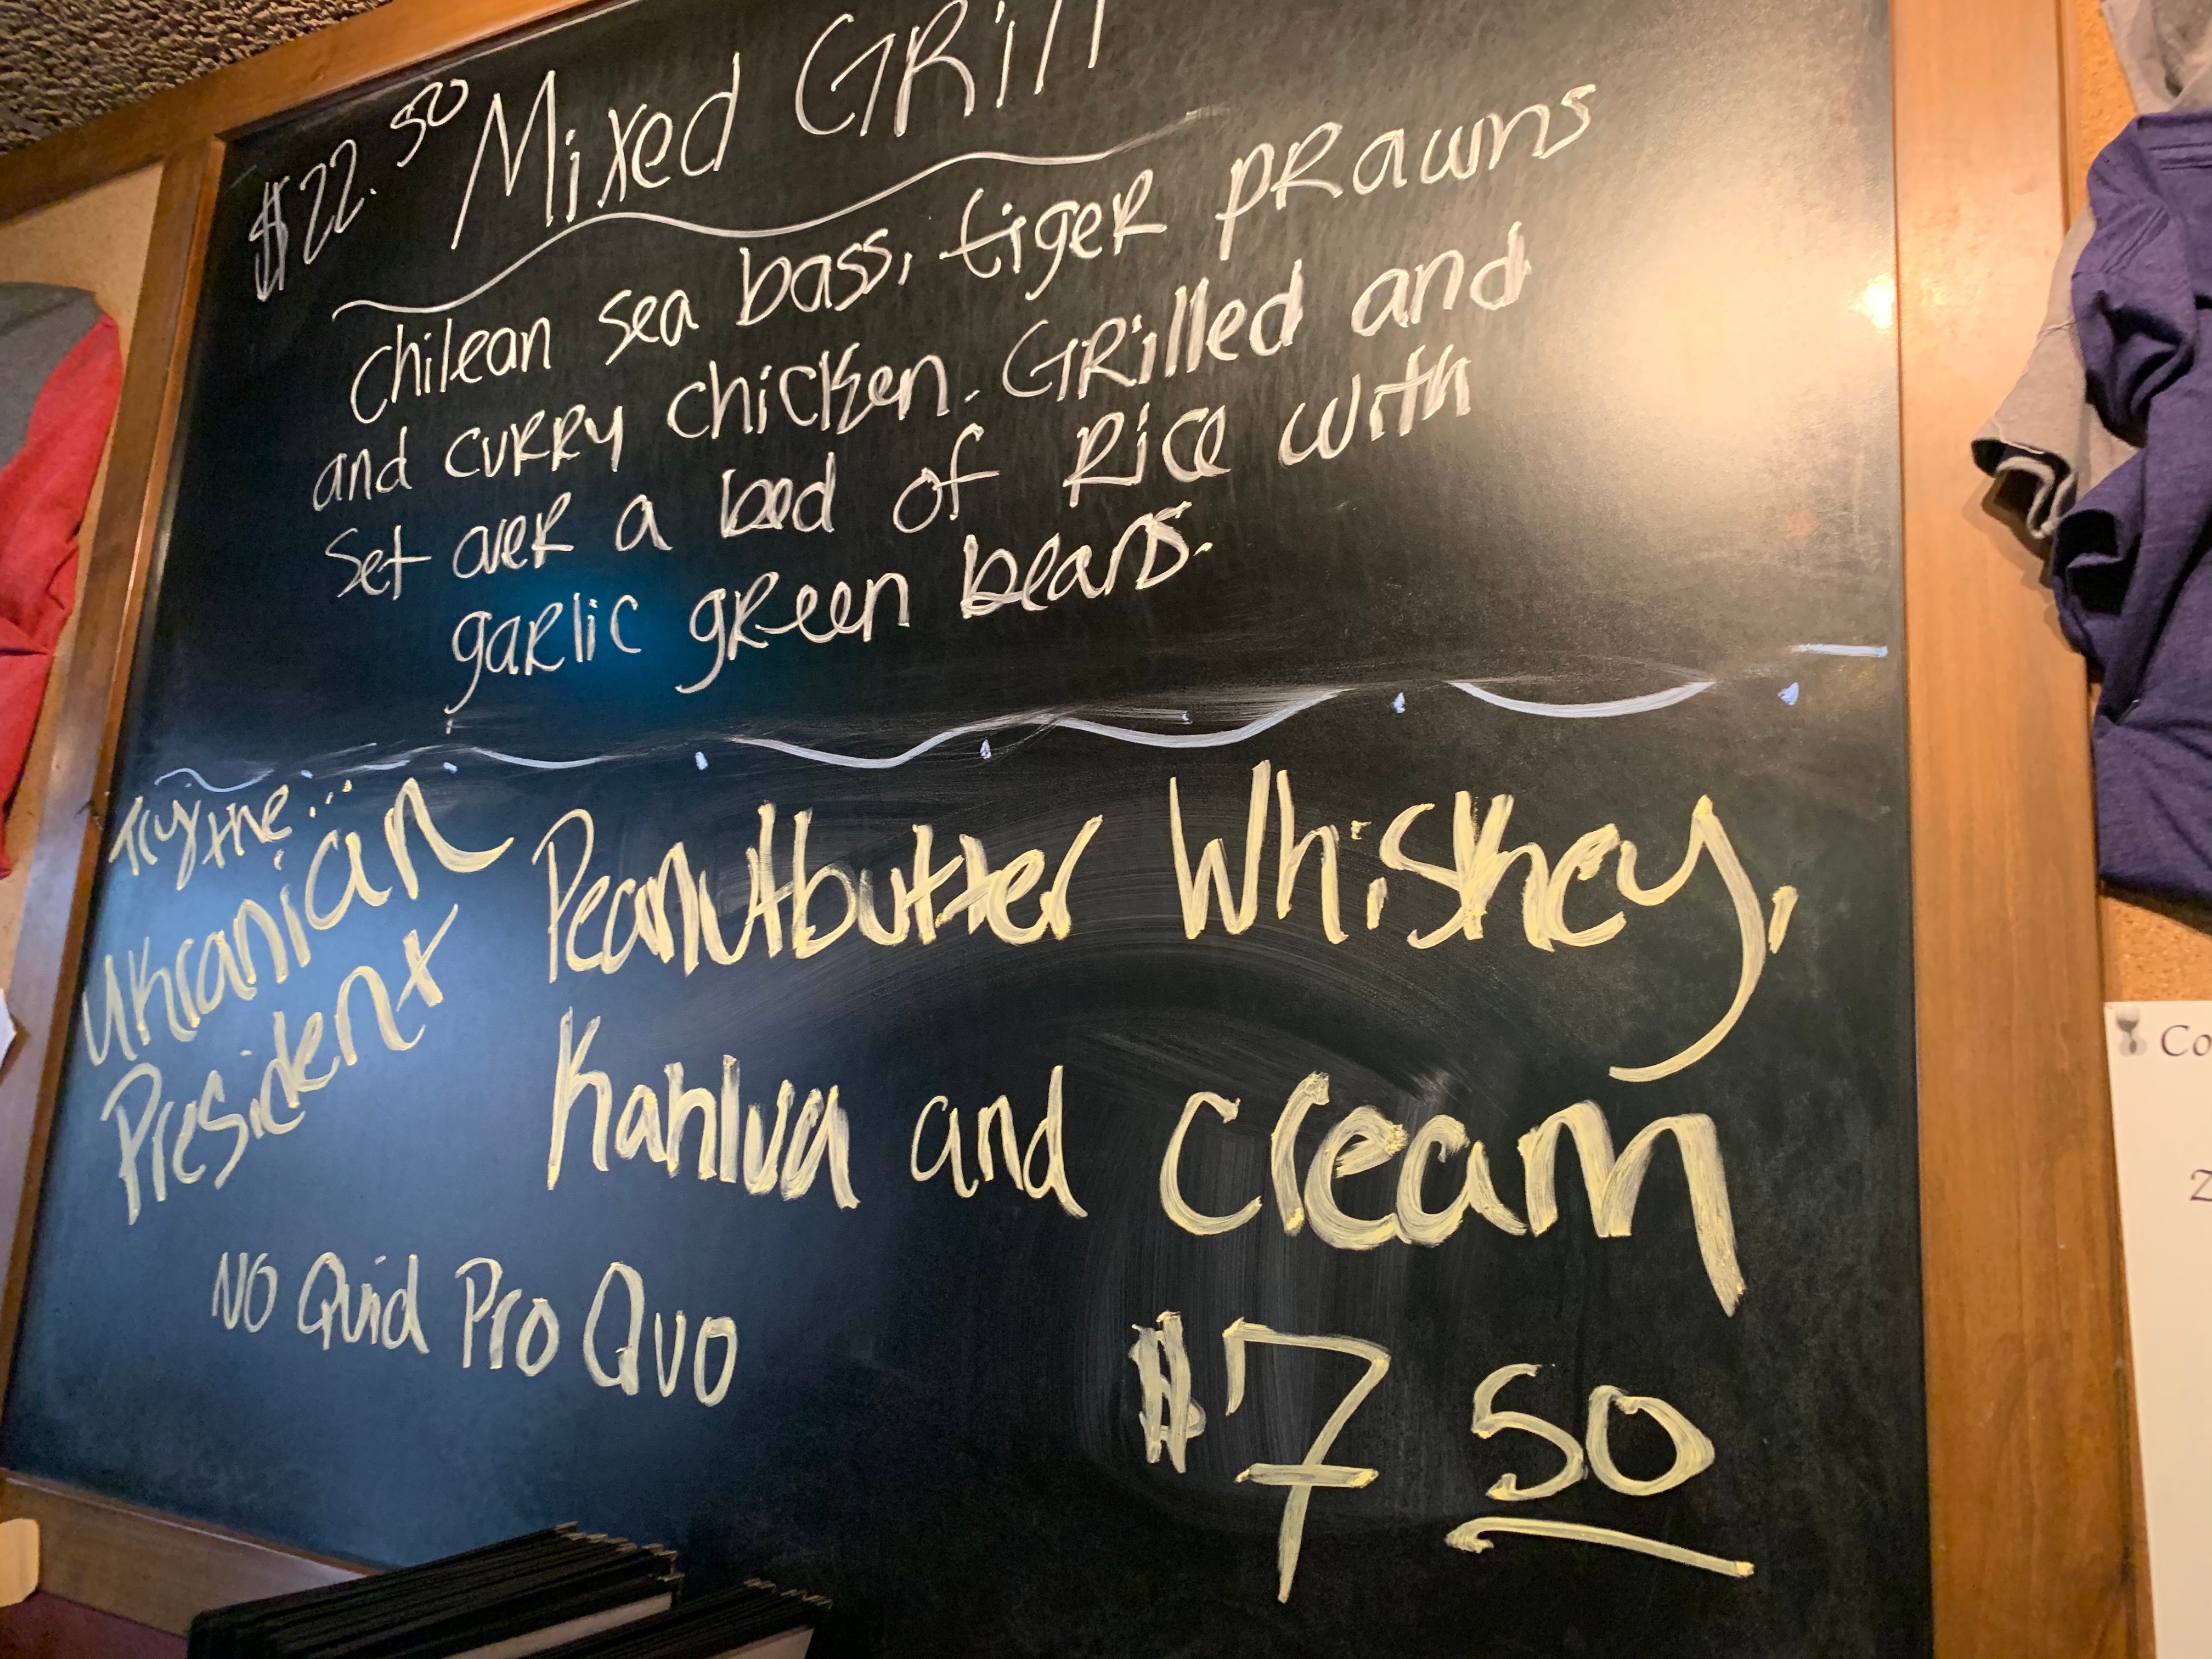 $22.50 Mixed GRill
chilean sea bass, tigeR pRawns
and cuRRy chicken. GRilled and
Set oveR a bed of Rice with
gaRlic gReen beans.
Try the...
Ukranian
President
Peanutbutter Whiskey,
Kahlua and cream
NO Quid Pro Quo
$7 50
Co